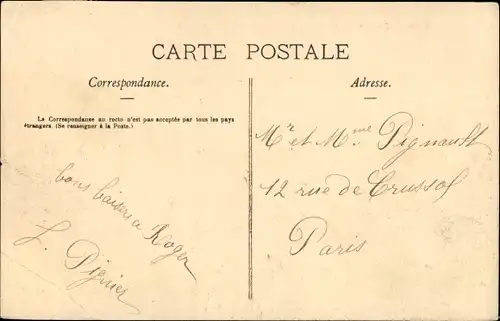 CARTE POSTALE
Correspondance.
La Correspondance au recto n'est pas acceptée par tous les pays
étrangers. (Se renseigner à la Poste.)
bons baisers a Roger
L. Pignier
Adresse.
Mr et Mme Pignault
12 rue de Crussol
Paris